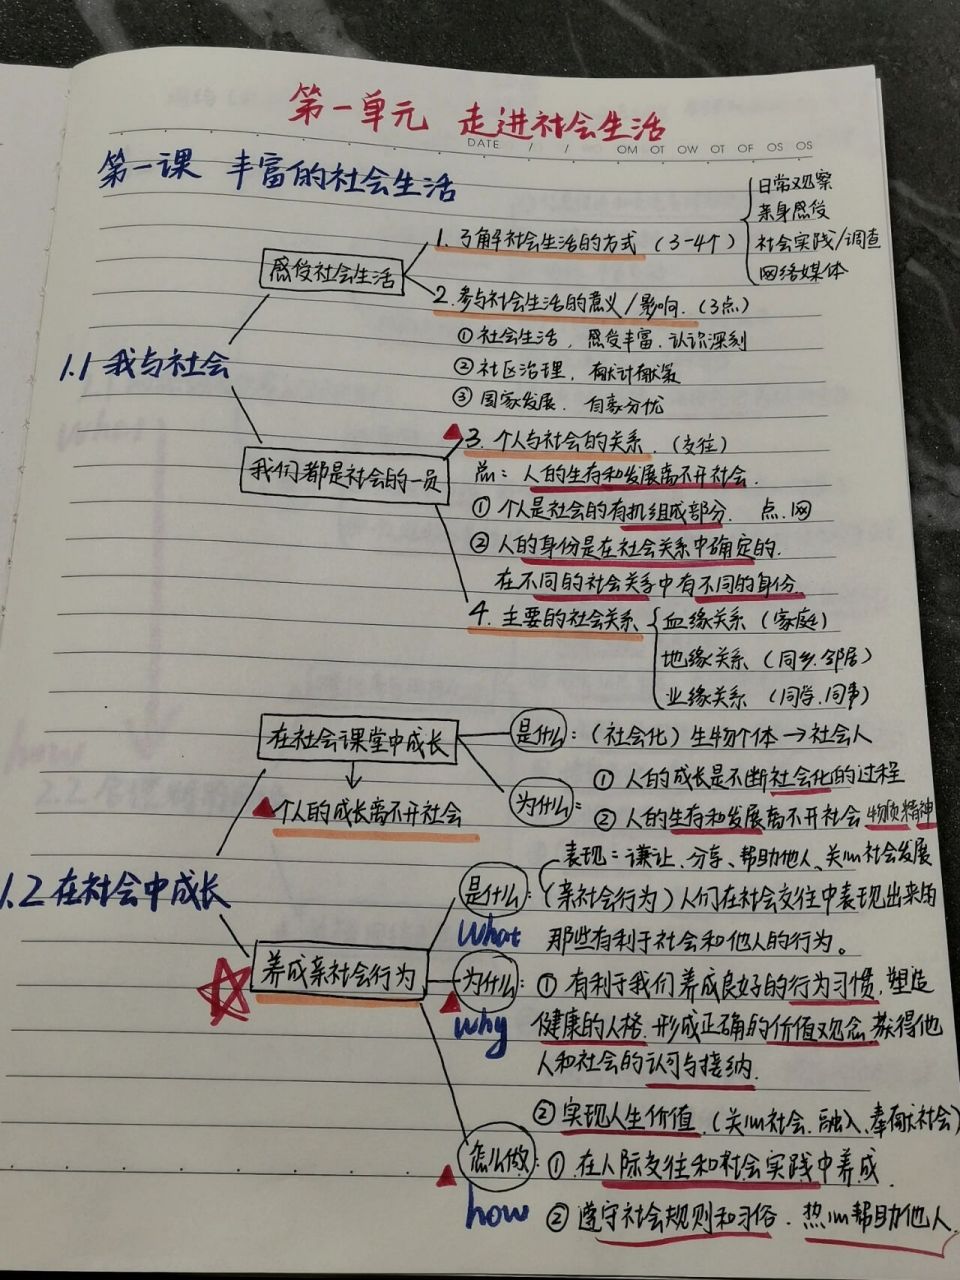 第一单元 走进社会生活
DATE / / OM OT OW OT OF OS OS
第一课 丰富的社会生活
日常观察
亲身感受
1. 了解社会生活的方式 (3-4个)
社会实践/调查
网络媒体
感受社会生活
2. 参与社会生活的意义/影响. (3点)
① 社会生活, 感受丰富. 认识深刻
② 社区治理, 献计献策
③ 国家发展. 自豪分忧
1.1 我与社会
3. 个人与社会的关系. (交往)
我们都是社会的一员
总: 人的生存和发展离不开社会.
① 个人是社会的有机组成部分. 点.网
② 人的身份是在社会关系中确定的.
在不同的社会关系中有不同的身份.
4. 主要的社会关系
血缘关系 (家庭)
地缘关系 (同乡.邻居)
业缘关系 (同学.同事)
在社会课堂中成长
是什么: (社会化) 生物个体→社会人
为什么:
① 人的成长是不断社会化的过程
② 人的生存和发展离不开社会 物质精神
个人的成长离不开社会
1.2 在社会中成长
表现: 谦让、分享、帮助他人、关心社会发展
是什么: (亲社会行为) 人们在社会交往中表现出来的
what 那些有利于社会和他人的行为。
养成亲社会行为
为什么: ① 有利于我们养成良好的行为习惯, 塑造
why 健康的人格. 形成正确的价值观念. 获得他
人和社会的认可与接纳.
② 实现人生价值. (关心社会、融入、奉献社会)
怎么做: ① 在人际交往和社会实践中养成.
how ② 遵守社会规则和习俗. 热心帮助他人.